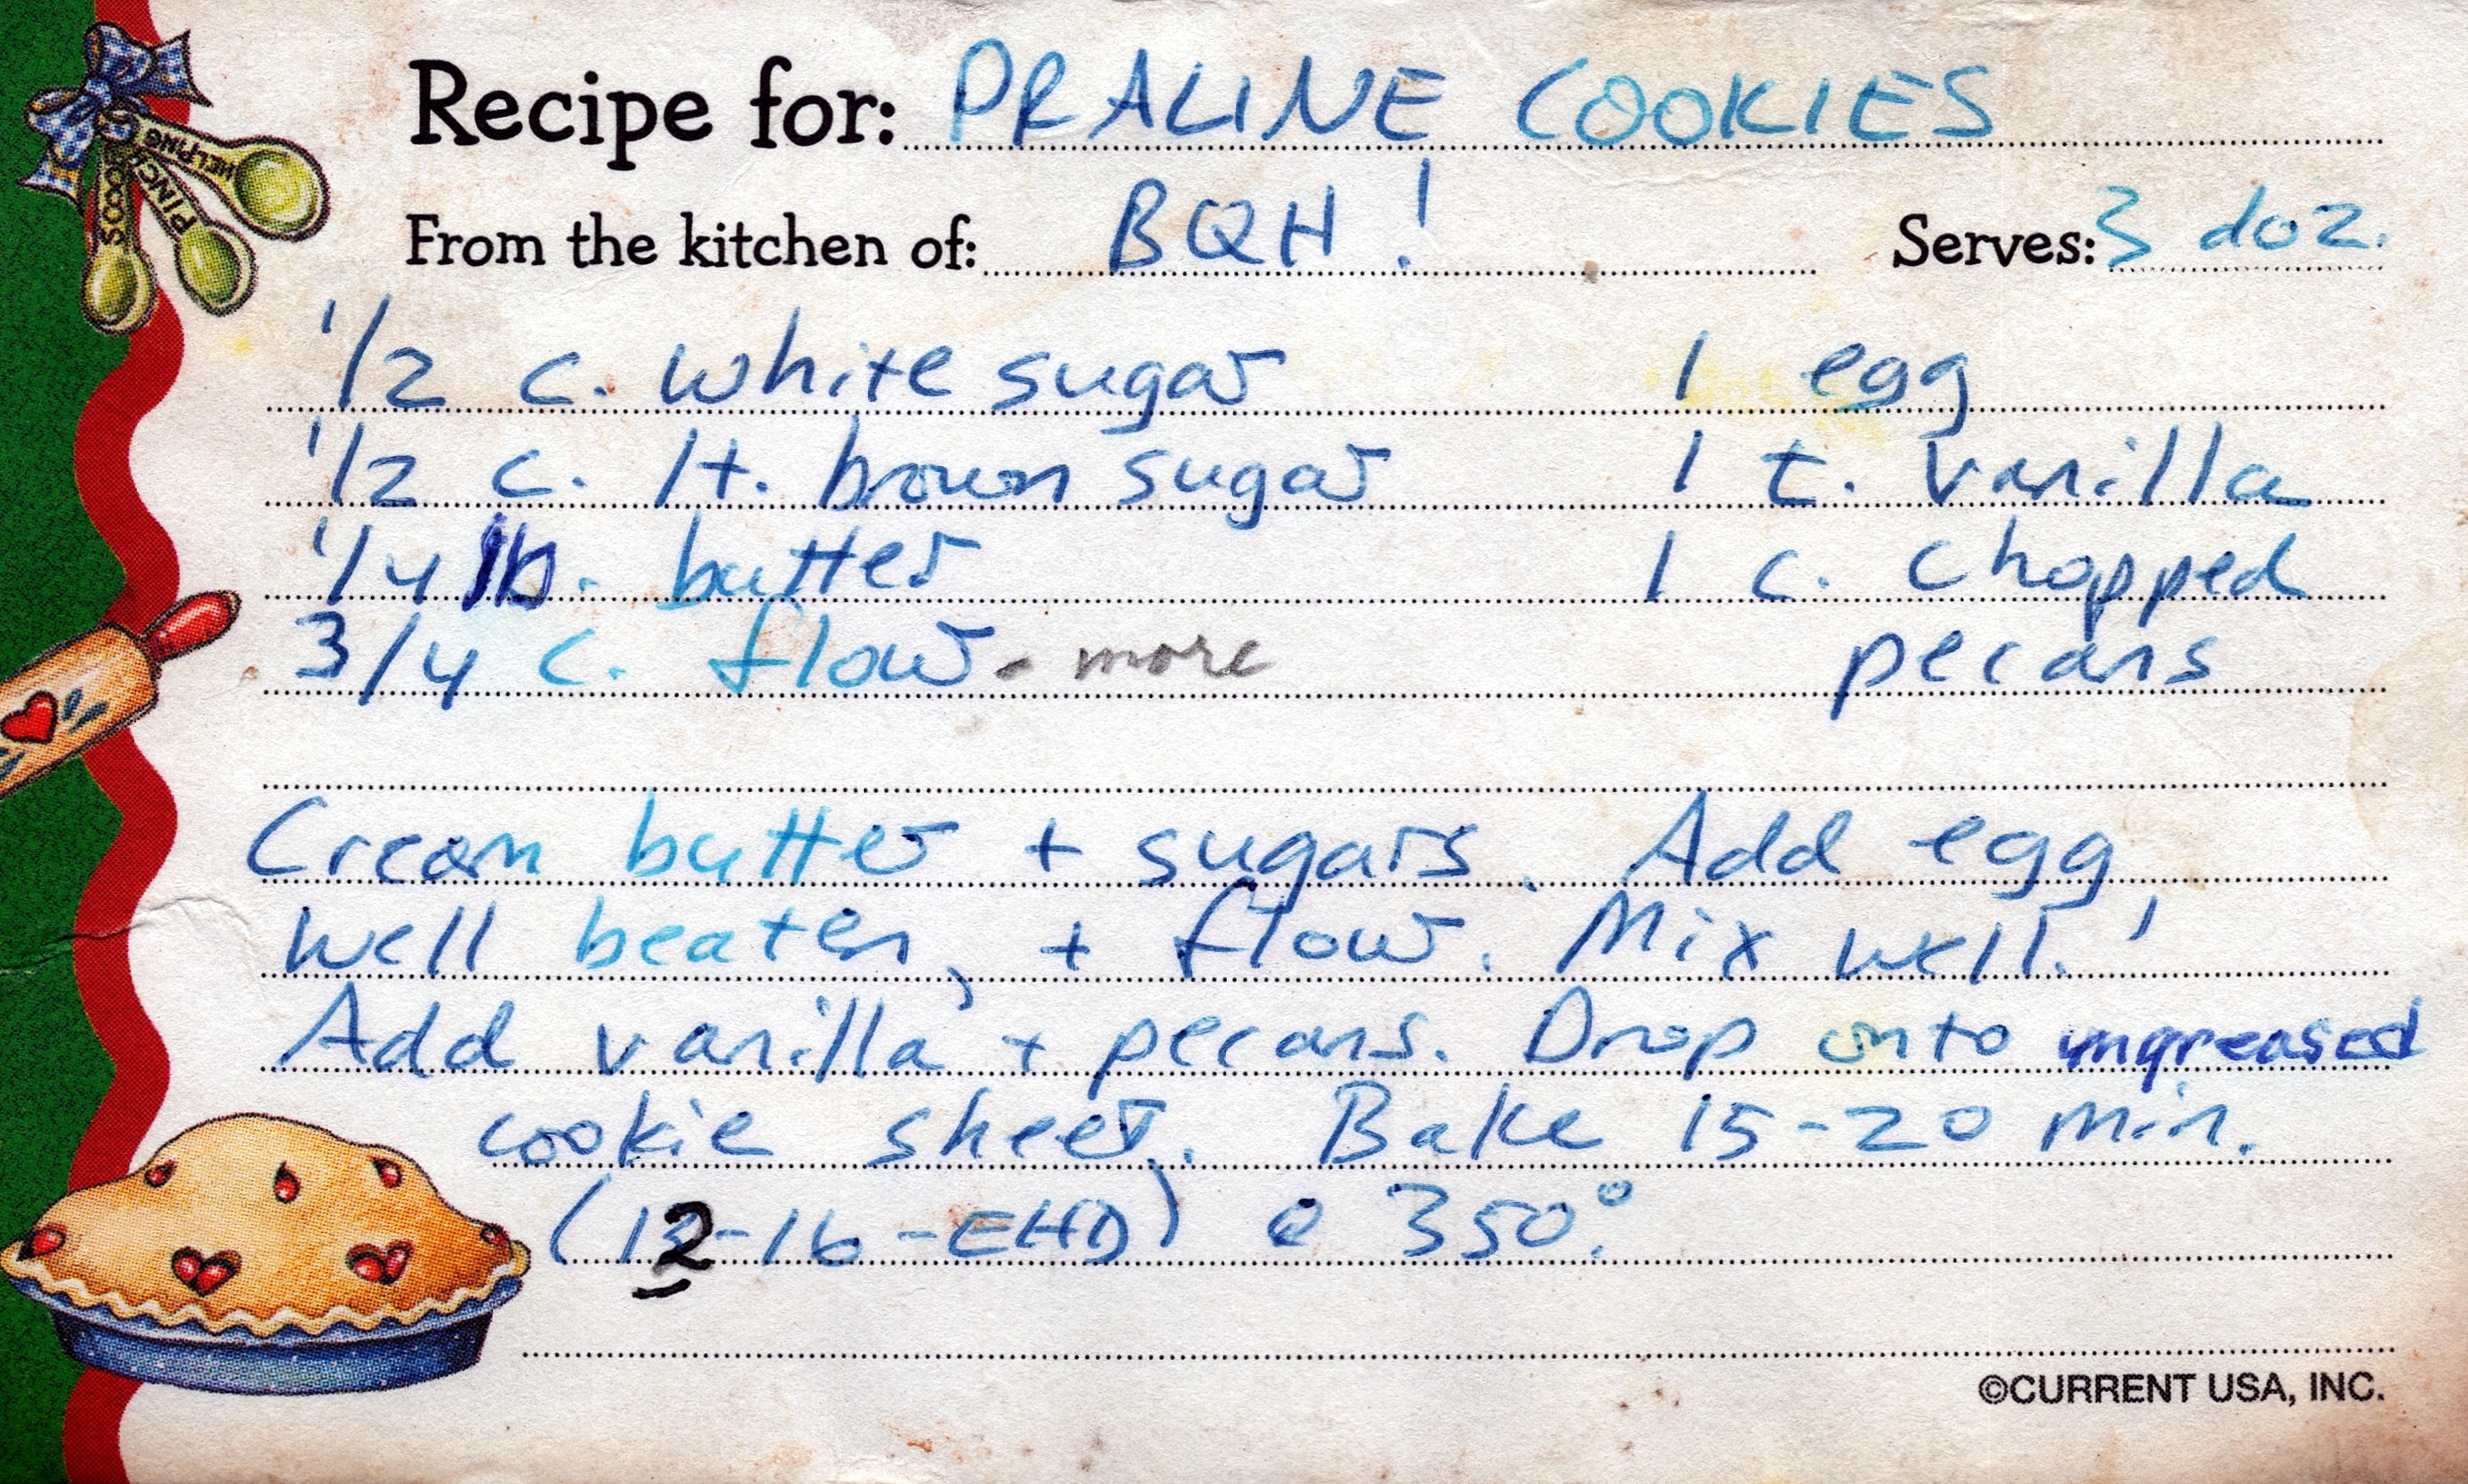 Recipe for: PRALINE COOKIES
From the kitchen of: BQH! Serves: 3 doz.
1/2 c. white sugar 1 egg
1/2 c. lt. brown sugar 1 t. vanilla
1/4 lb. butter 1 c. chopped
3/4 c. flour - more pecans
Cream butter + sugars. Add egg,
well beaten, + flour. Mix well!
Add vanilla + pecans. Drop onto ungreased
cookie sheet. Bake 15-20 min.
(12-16-EHD) @ 350°.
©CURRENT USA, INC.
SCOOP
PINCH
HELPING